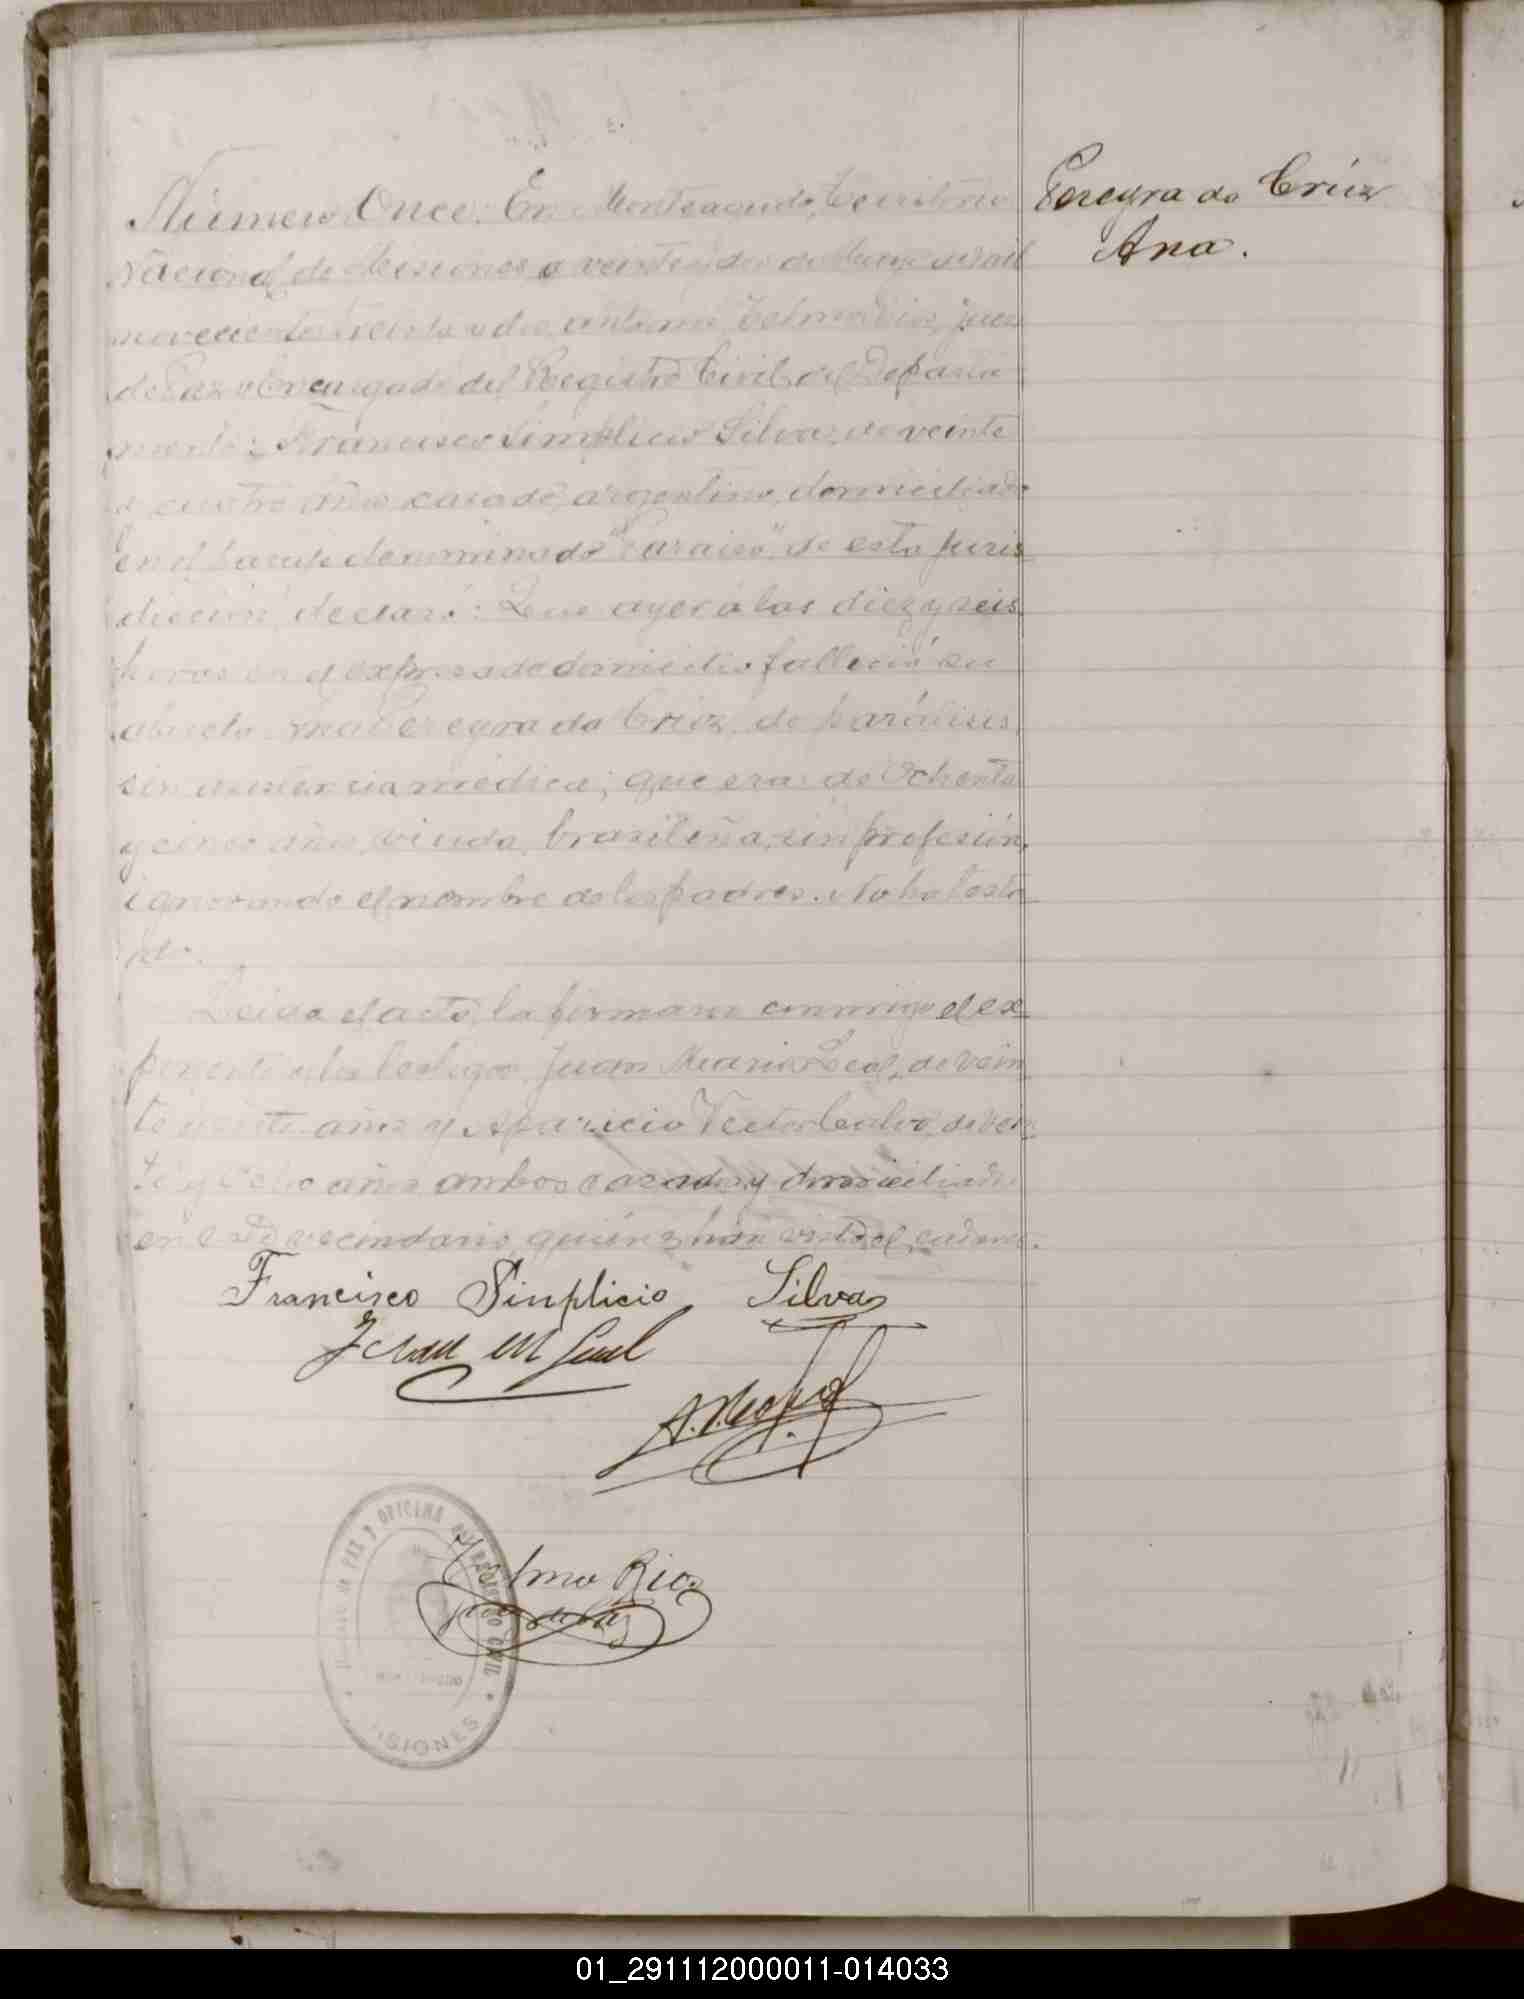 Pereyra da Crúz
Ana.
Número Once. En Monteagudo, Territorio
Nacional de Misiones a veinte y dos de Mayo de mil
novecientos treinta y dos, ante mi, Telmo Rios, juez
de Paz y Encargado del Registro Civil del Departa
mento: Francisco Simplicio Silva, de veinte
y cuatro años, casado, argentino, domiciliado
en el paraje denominado "Paraiso", de esta juris
dicción, declaró: Que ayer a las diez y seis
horas en el expresado domicilio falleció su
abuela Ana Pereyra da Crúz, de parálisis,
sin asistencia médica; que era de Ochenta
y cinco años, viuda, brasileña, sin profesión,
ignorando el nombre de los padres. No ha testa
do.
Leida el acta, la firmaron conmigo el ex
ponente y los testigos, Juan Maria Leal, de vein
te y siete años y Aparicio Victor de ve
te y años ambos casados y domiciliados
en este vecindario, quienes han visto el cadaver.
Francisco Sinplicio Silva
Juan M Leal
Telmo Rios
juez de Paz
JUZGADO DE PAZ Y OFICINA DEL REGISTRO CIVIL
MISIONES
01_291112000011-014033